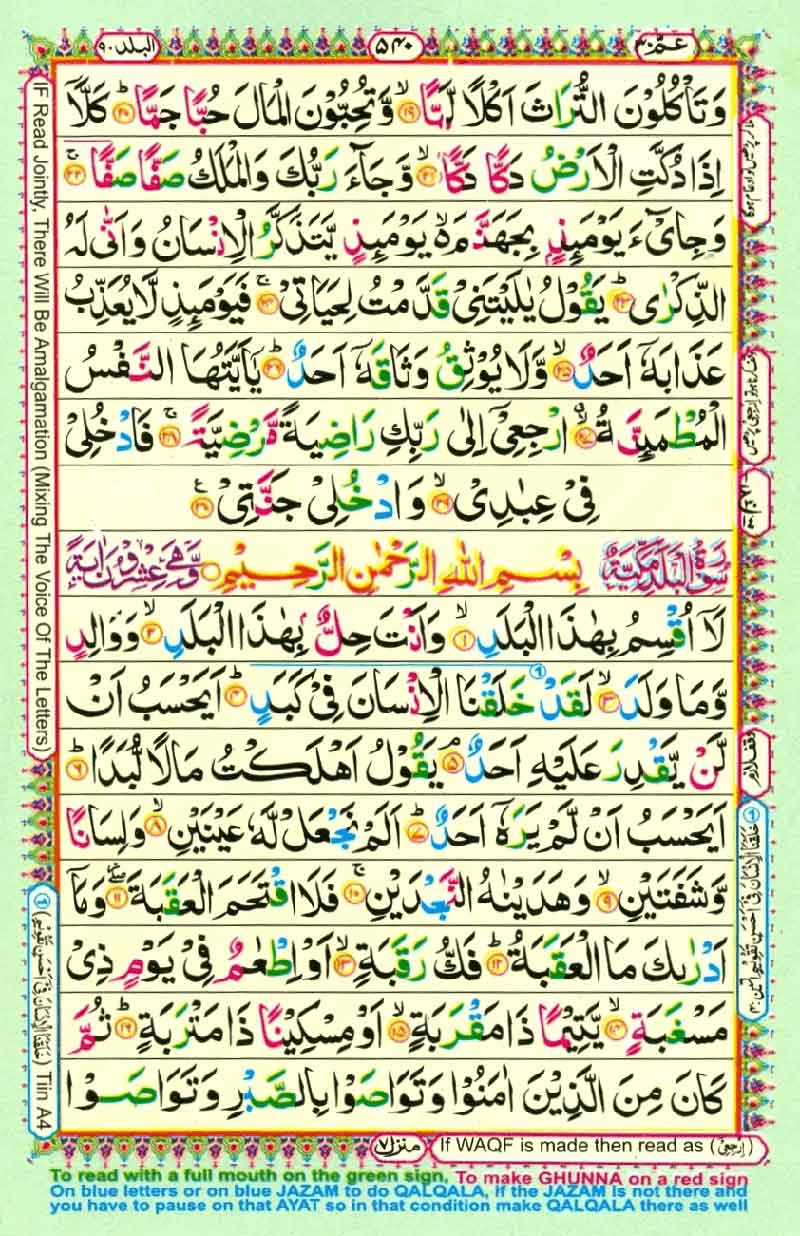 عمّ ۳۰
۵۴۰
البلد ۹۰
وَتَاۡكُلُوۡنَ التُّرَاثَ اَكۡلًا لَّمًّا ۙ‏﴿۱۹﴾ وَّتُحِبُّوۡنَ الۡمَالَ حُبًّا جَمًّا ؕ‏﴿۲۰﴾ كَلَّاۤ
اِذَا دُكَّتِ الۡاَرۡضُ دَكًّا دَكًّا ۙ‏﴿۲۱﴾ وَّجَآءَ رَبُّكَ وَالۡمَلَكُ صَفًّا صَفًّا ۚ‏﴿۲۲﴾
وَجِاىْٓءَ يَوۡمَئِذٍۢ بِجَهَنَّمَ ۙ يَوۡمَئِذٍ يَّتَذَكَّرُ الۡاِنۡسَانُ وَاَنّٰى لَهُ
الذِّكۡرٰى ؕ‏﴿۲۳﴾ يَقُوۡلُ يٰلَيۡتَنِىۡ قَدَّمۡتُ لِحَيَاتِىۡ ۚ‏﴿۲۴﴾ فَيَوۡمَئِذٍ لَّا يُعَذِّبُ
عَذَابَهٗۤ اَحَدٌ ۙ‏﴿۲۵﴾ وَّلَا يُوۡثِقُ وَثَاقَهٗۤ اَحَدٌ ؕ‏﴿۲۶﴾ يٰۤاَيَّتُهَا النَّفۡسُ
الۡمُطۡمَئِنَّةُ ۖ‏﴿۲۷﴾ ارۡجِعِىۡۤ اِلٰى رَبِّكِ رَاضِيَةً مَّرۡضِيَّةً ۚ‏﴿۲۸﴾ فَادۡخُلِىۡ
فِىۡ عِبٰدِىۙ‏﴿۲۹﴾ وَادۡخُلِىۡ جَنَّتِى‏﴿۳۰﴾ ع
سُوۡرَةُ الۡبَلَدِ مَكِّيَّةٌ بِسۡمِ اللهِ الرَّحۡمٰنِ الرَّحِيۡمِ وَّهِىَ عِشۡرُوۡنَ اٰيَةً
لَاۤ اُقۡسِمُ بِهٰذَا الۡبَلَدِ ۙ‏﴿۱﴾ وَاَنۡتَ حِلٌّۢ بِهٰذَا الۡبَلَدِ ۙ‏﴿۲﴾ وَوَالِدٍ
وَّمَا وَلَدَ ۙ‏﴿۳﴾ لَقَدۡ خَلَقۡنَا الۡاِنۡسَانَ فِىۡ كَبَدٍ ؕ‏﴿۴﴾ اَيَحۡسَبُ اَنۡ
لَّنۡ يَّقۡدِرَ عَلَيۡهِ اَحَدٌ ۘ‏﴿۵﴾ يَقُوۡلُ اَهۡلَكۡتُ مَالًا لُّبَدًا ؕ‏﴿۶﴾
اَيَحۡسَبُ اَنۡ لَّمۡ يَرَهٗۤ اَحَدٌ ؕ‏﴿۷﴾ اَلَمۡ نَجۡعَلۡ لَّهٗ عَيۡنَيۡنِ ۙ‏﴿۸﴾ وَلِسَانًا
وَّشَفَتَيۡنِ ۙ‏﴿۹﴾ وَهَدَيۡنٰهُ النَّجۡدَيۡنِ ۚ‏﴿۱۰﴾ فَلَا اقۡتَحَمَ الۡعَقَبَةَ ۖ‏﴿۱۱﴾ وَمَاۤ
اَدۡرٰٮكَ مَا الۡعَقَبَةُ ؕ‏﴿۱۲﴾ فَكُّ رَقَبَةٍ ۙ‏﴿۱۳﴾ اَوۡ اِطۡعٰمٌ فِىۡ يَوۡمٍ ذِىۡ
مَسۡغَبَةٍ ۙ‏﴿۱۴﴾ يَّتِيۡمًا ذَا مَقۡرَبَةٍ ۙ‏﴿۱۵﴾ اَوۡ مِسۡكِيۡنًا ذَا مَتۡرَبَةٍ ؕ‏﴿۱۶﴾ ثُمَّ
كَانَ مِنَ الَّذِيۡنَ اٰمَنُوۡا وَتَوَاصَوۡا بِالصَّبۡرِ وَتَوَاصَوۡا
IF Read Jointly, There Will Be Amalgamation (Mixing The Voice Of The Letters)
① (خَلَقۡنَا الۡاِنۡسَانَ فِىۡۤ اَحۡسَنِ تَقۡوِيۡمٍ) Tiin A4
① خَلَقۡنَا الۡاِنۡسَانَ فِىۡۤ اَحۡسَنِ تَقۡوِيۡمٍ
منزل ۷
If WAQF is made then read as (اِرۡجِعِىۡ)
To read with a full mouth on the green sign, To make GHUNNA on a red sign
On blue letters or on blue JAZAM to do QALQALA, If the JAZAM is not there and
you have to pause on that AYAT so in that condition make QALQALA there as well